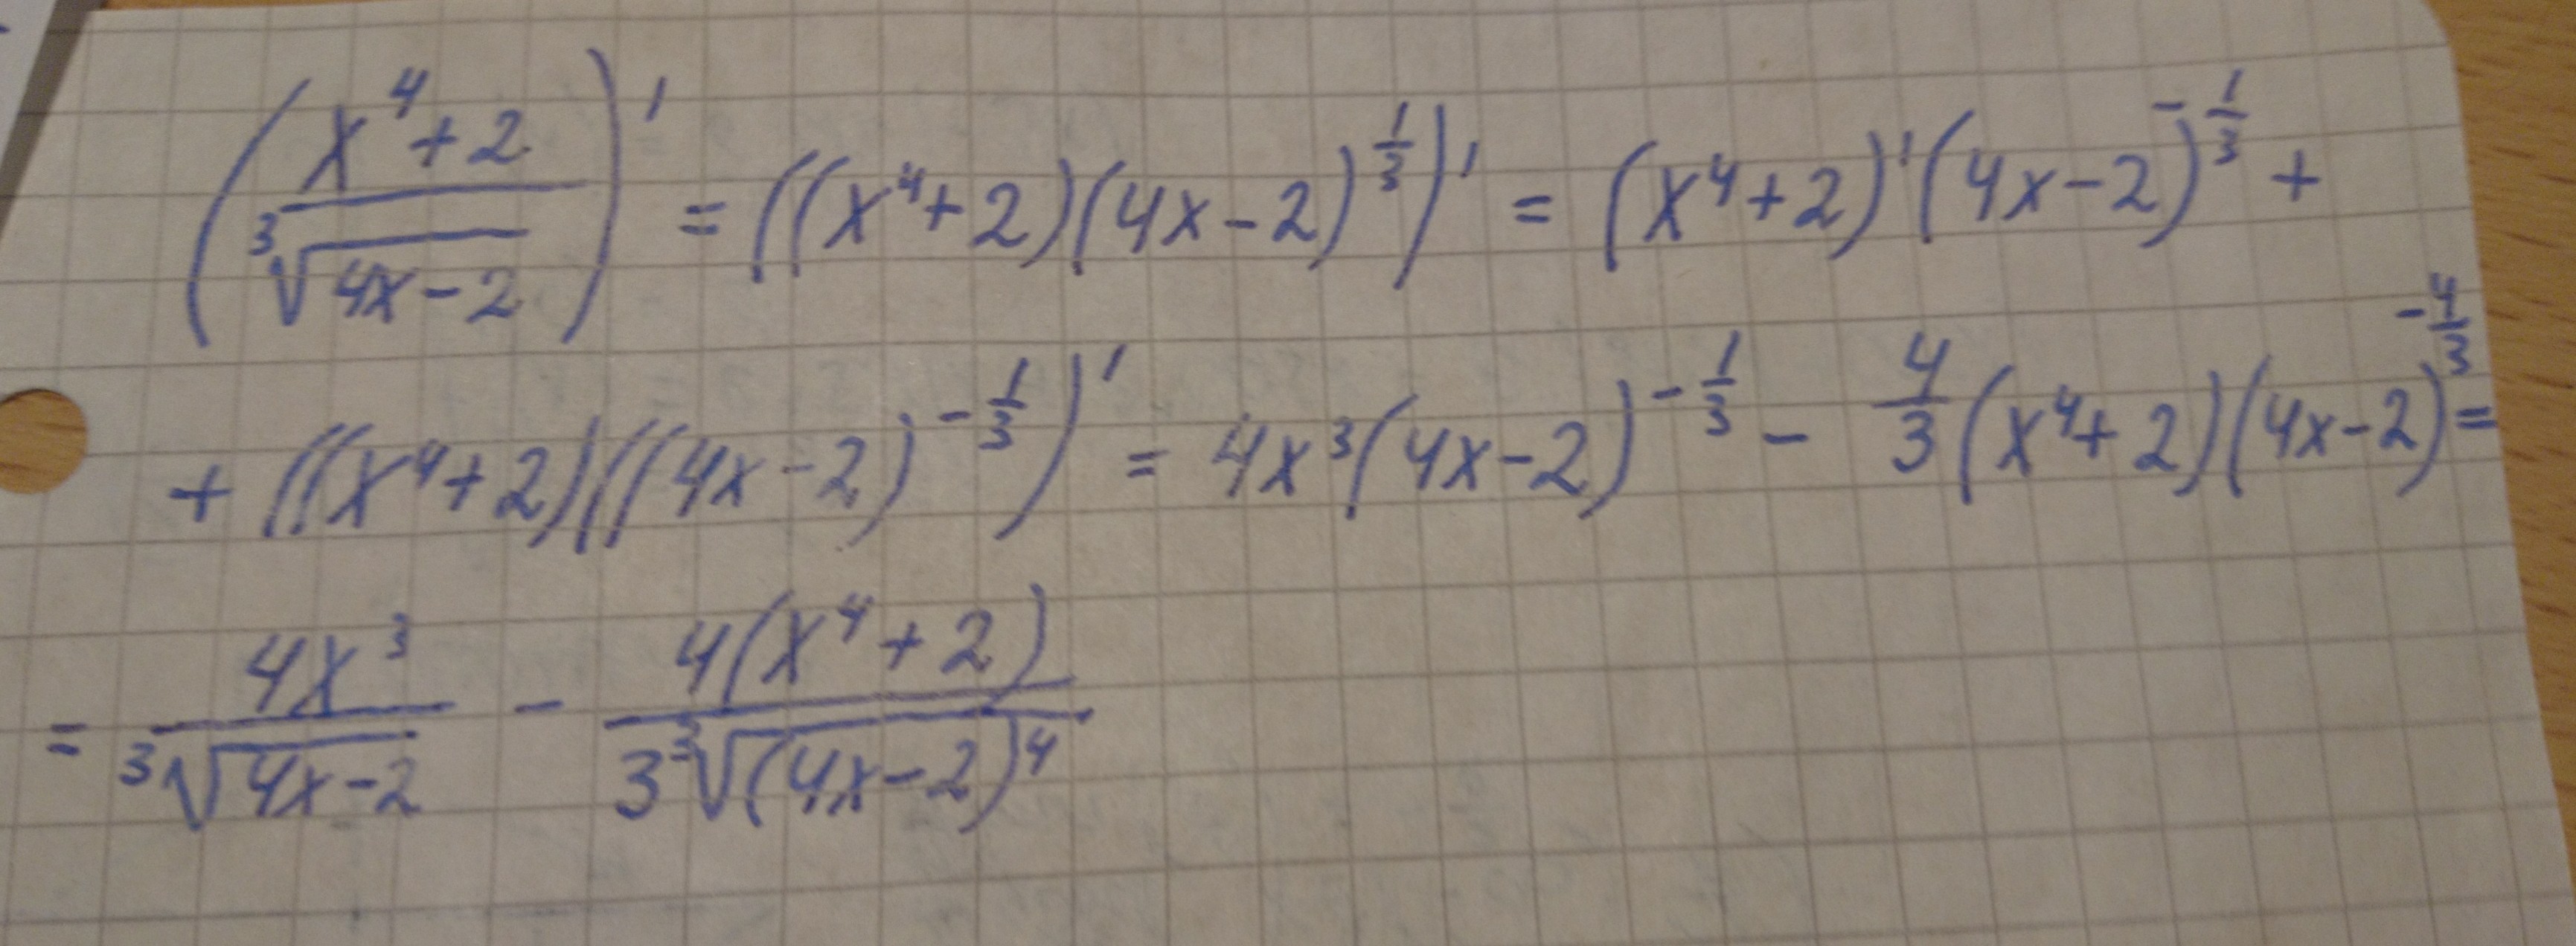 (x⁴+2 / ∛(4x−2))' = ((x⁴+2)(4x−2)^(1/3))' = (x⁴+2)'(4x−2)^(−1/3) +
+ ((x⁴+2)((4x−2)^(−1/3))' = 4x³(4x−2)^(−1/3) − 4/3(x⁴+2)(4x−2)^(−4/3) =
= 4x³ / ∛(4x−2) − 4(x⁴+2) / 3∛((4x−2)⁴)